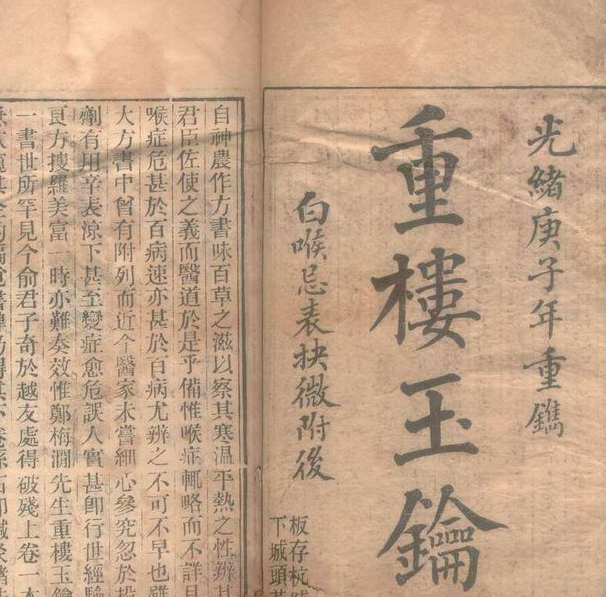 光緒庚子年重鐫
重樓玉鑰
白喉忌表抉微附後
板存杭
下城頭
自神農作方書味百草之滋以察其寒溫平熱之性辨其
君臣佐使之義而醫道於是乎備惟喉症輒略而不詳且
喉症危甚於百病速亦甚於百病尤辨之不可不早也雖
大方書中曾有附列而近今醫家未嘗細心參究忽於投
劑有用辛表涼下甚至變症愈危誤人實甚即行世經驗
良方搜羅美富一時亦難奏效惟鄭梅澗先生重樓玉鑰
一書世所罕見今俞君子奇於越友處得破殘上卷一本